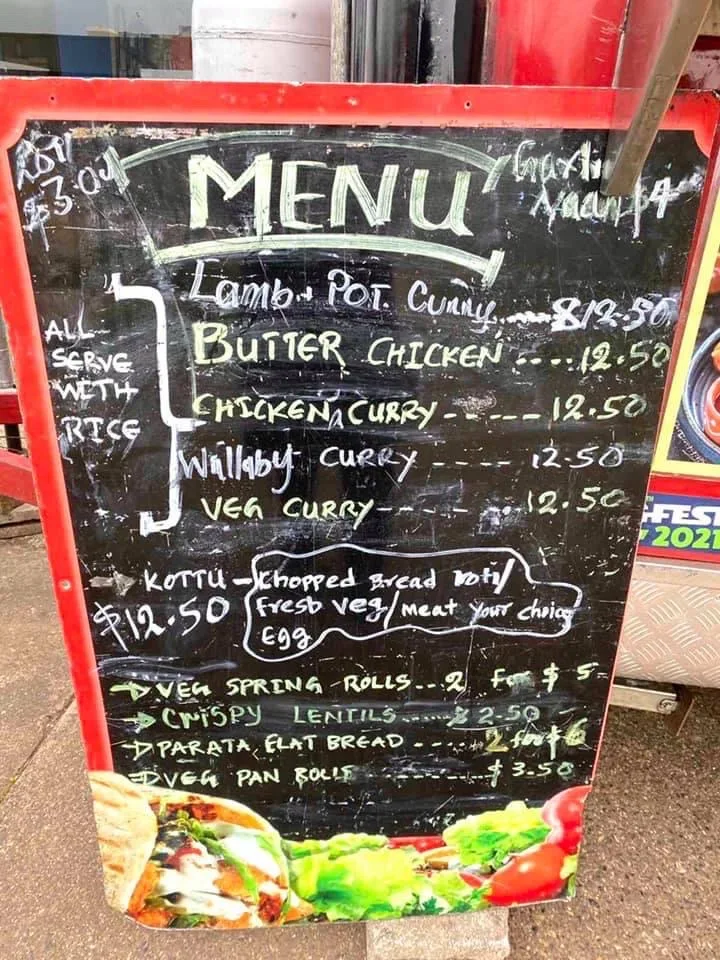 ROTI
$3.00
MENU
Garlic
Naan $4
Lamb. POT. Curry....$12.50
BUTTER CHICKEN ....12.50
CHICKEN CURRY ----- 12.50
Wallaby CURRY ---- 12.50
VEG CURRY ----- 12.50
ALL
SERVE
WITH
RICE
KOTTU - Chopped Bread roti/
$12.50
Fresh veg/meat your choice
Egg
VEG SPRING ROLLS...2 For $5
CRISPY LENTILS......$2.50
PARATA FLAT BREAD ----- 2 for $6
VEG PAN ROLLS ............$3.50
FEST
2021